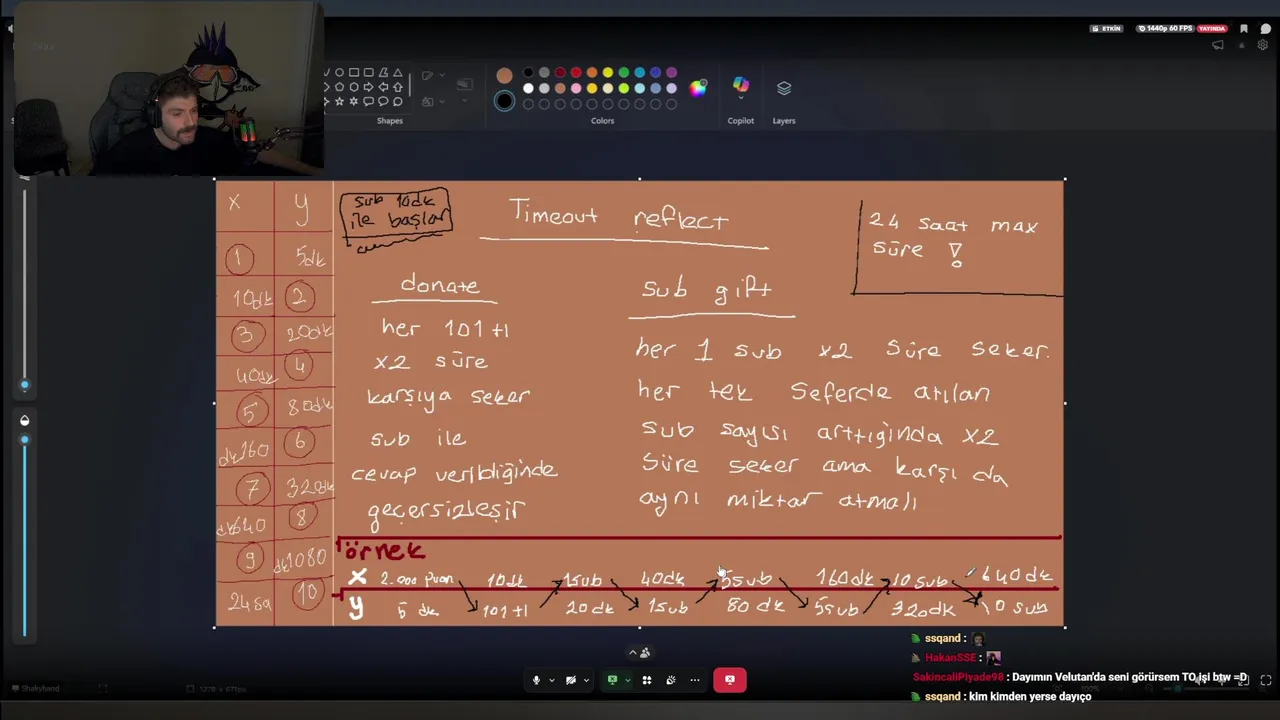 ETKİN
1440p 60 FPS
YAYINDA
Shapes
Colors
Copilot
Layers
x y
1 5dk
10dk 2
3 20dk
40dk 4
5 80dk
dk160 6
7 320dk
dk640 8
9 dk1080
24sa 10
sub 10dk
ile başlar
Timeout reflect
24 saat max
süre !
donate
her 101 tl
x2 süre
karşıya seker
sub ile
cevap verildiğinde
geçersizleşir
sub gift
her 1 sub x2 süre seker.
her tek seferde atılan
sub sayısı arttığında x2
süre seker ama karşı da
aynı miktar atmalı
örnek
x 2.000 puan 10dk 1sub 40dk 5sub 160dk 10sub 640dk
y 5 dk 101 tl 20dk 1sub 80 dk 5sub 320dk 10 sub
ssqand :
HakanSSE :
SakincaliPiyade98 : Dayımın Velutan'da seni görürsem TO işi btw =D
ssqand : kim kimden yerse dayıço
Shakyhand
1278 × 671px